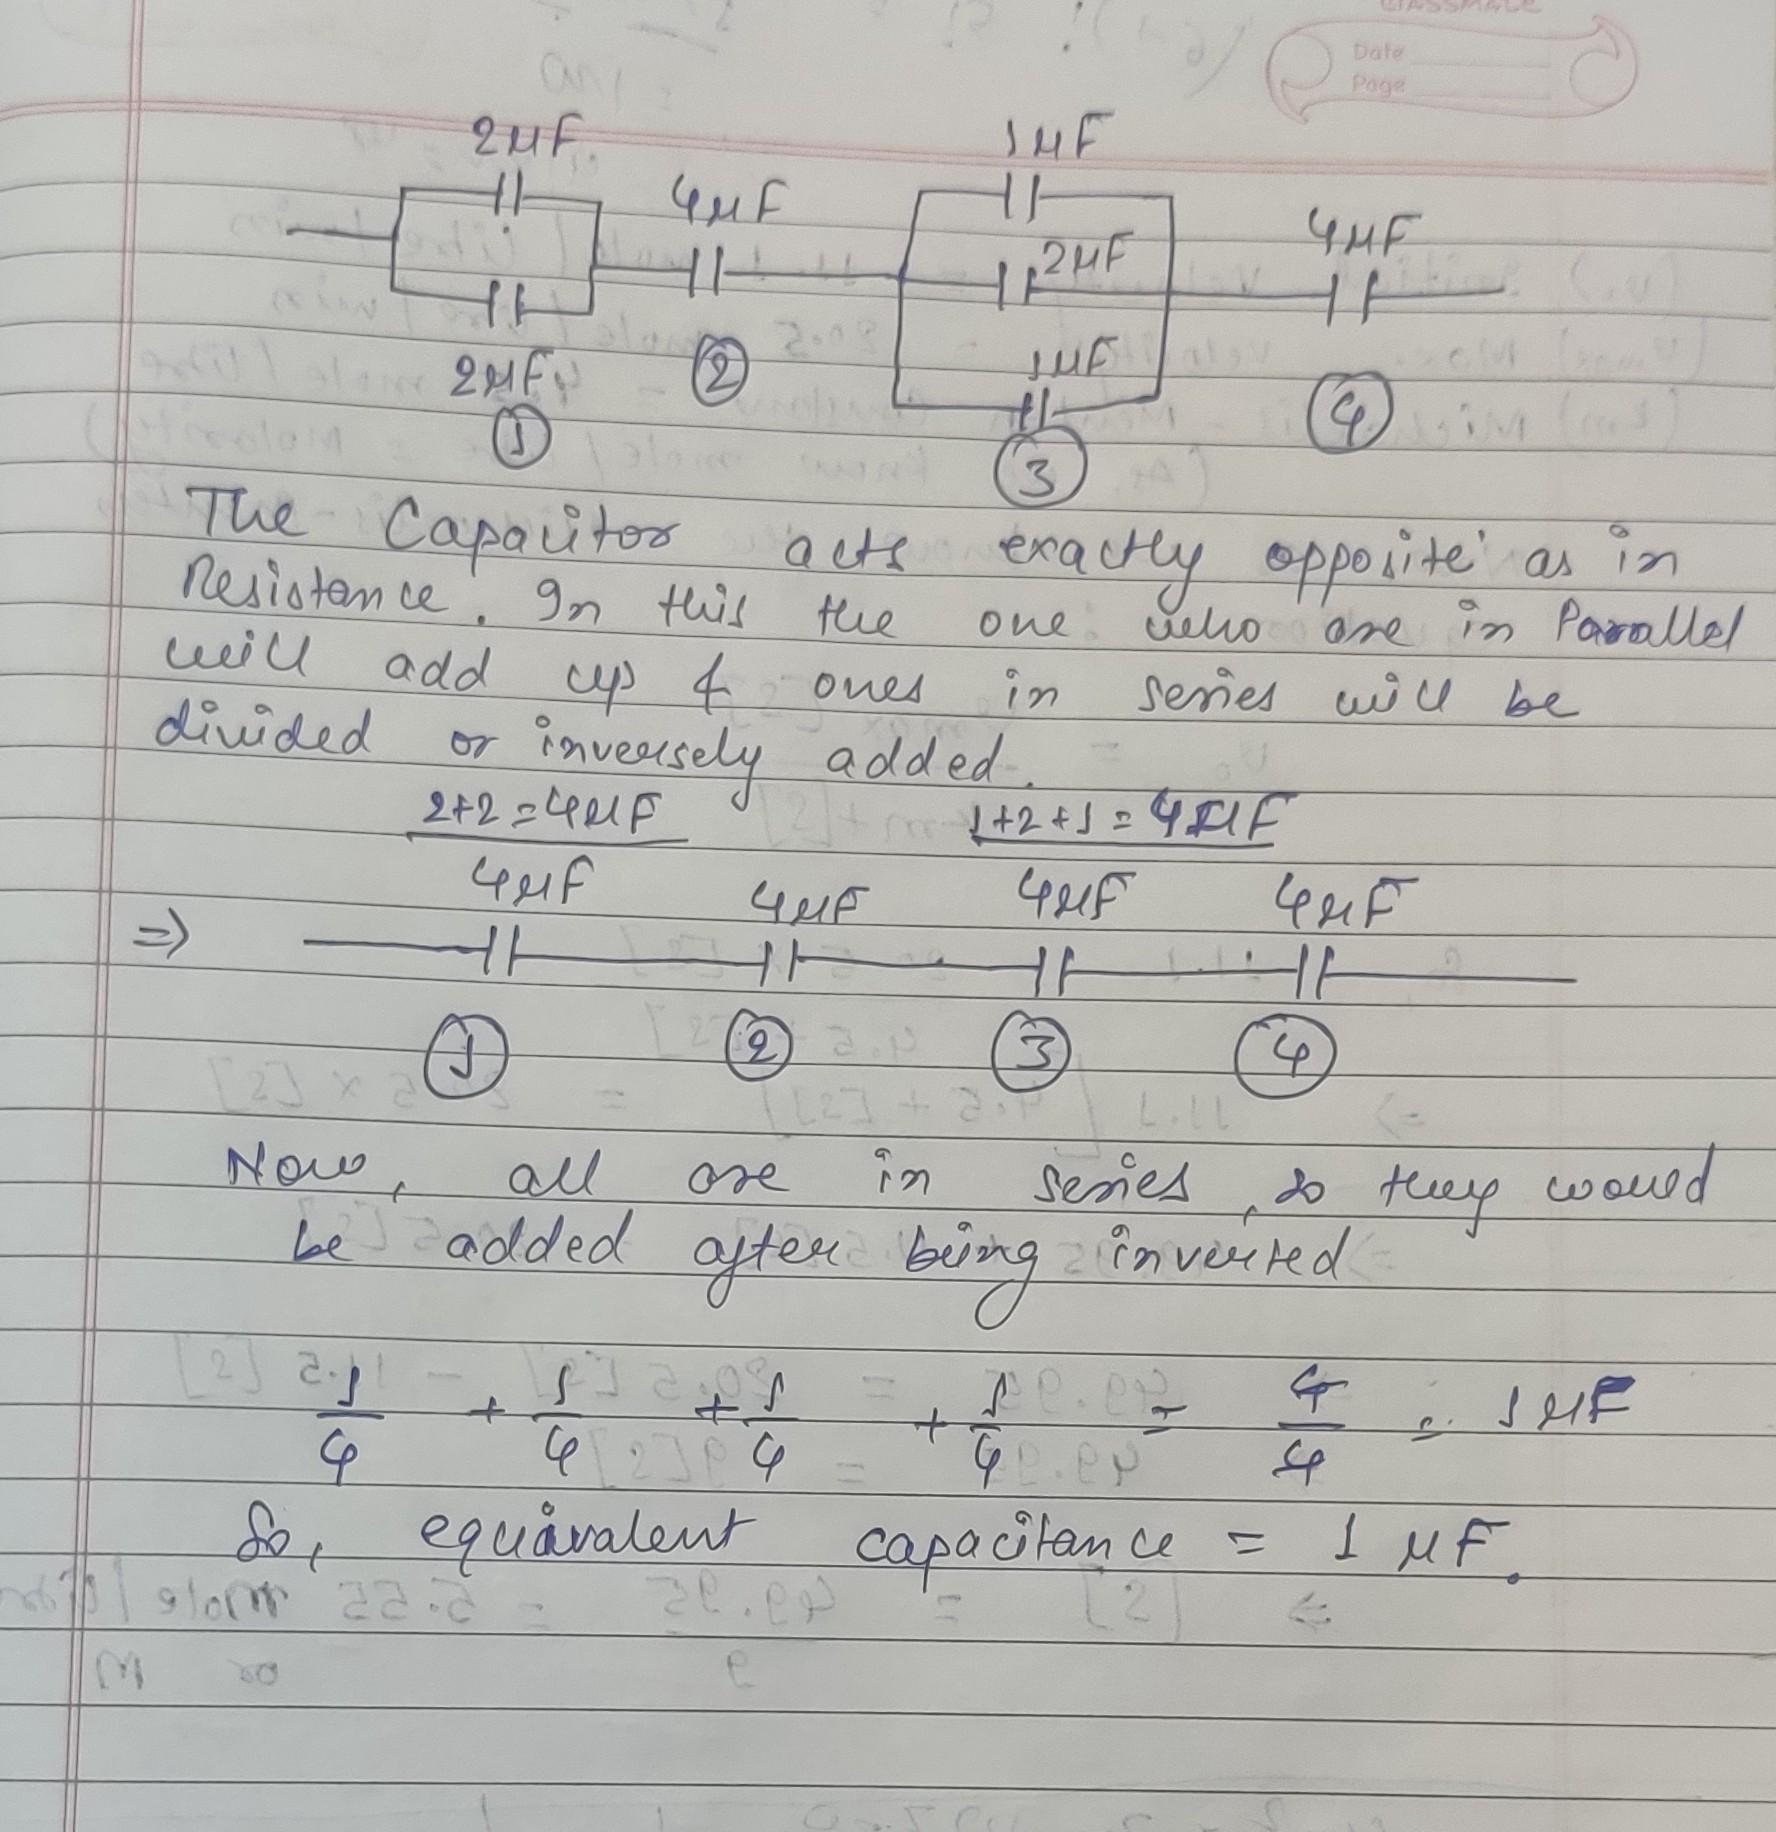 classmate
Date
Page
2μF
1μF
4μF
4μF
2μF
1μF
2μF
1
2
3
4
The Capacitor acts exactly opposite as in
Resistance. In this the one who are in Parallel
will add up & ones in series will be
divided or inversely added.
2+2=4μF
1+2+1=4μF
4μF 4μF 4μF 4μF
⇒
1 2 3 4
Now, all are in series, so they would
be added after being inverted
1/4 + 1/4 + 1/4 + 1/4 = 4/4 = 1μF
So, equivalent capacitance = 1 μF.